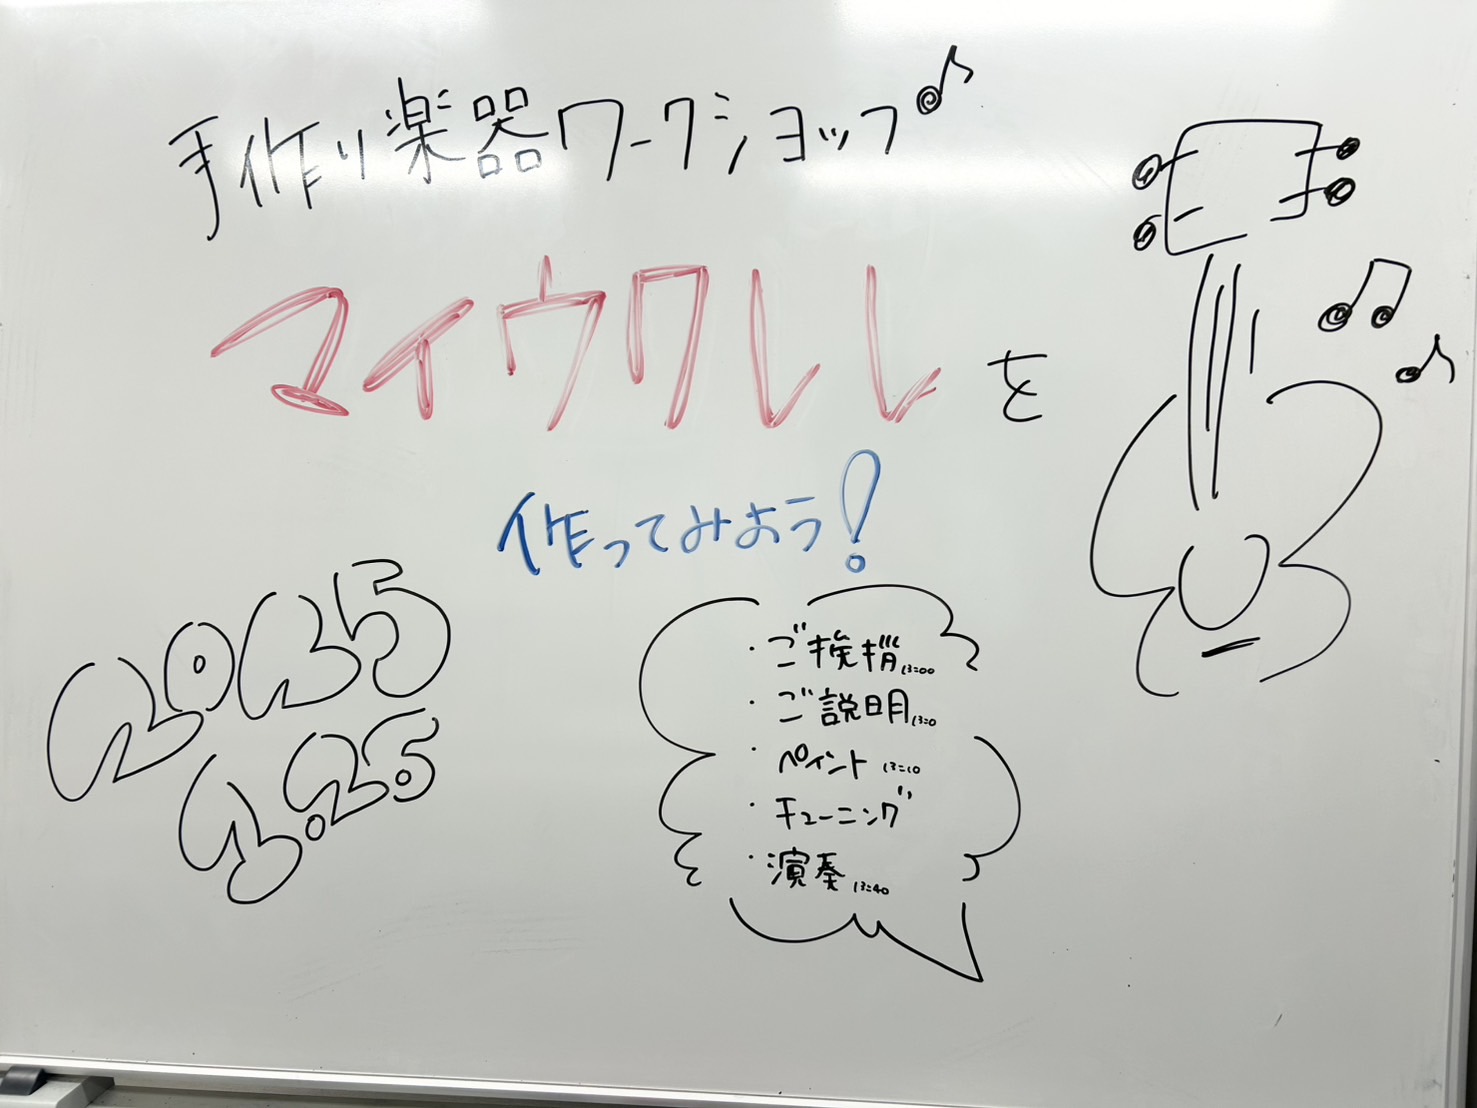 手作り楽器ワークショップ♪
マイウクレレを
作ってみよう!
2025
・ご挨拶 13:00
・ご説明
・ペイント 13:10
・チューニング
・演奏 13:40